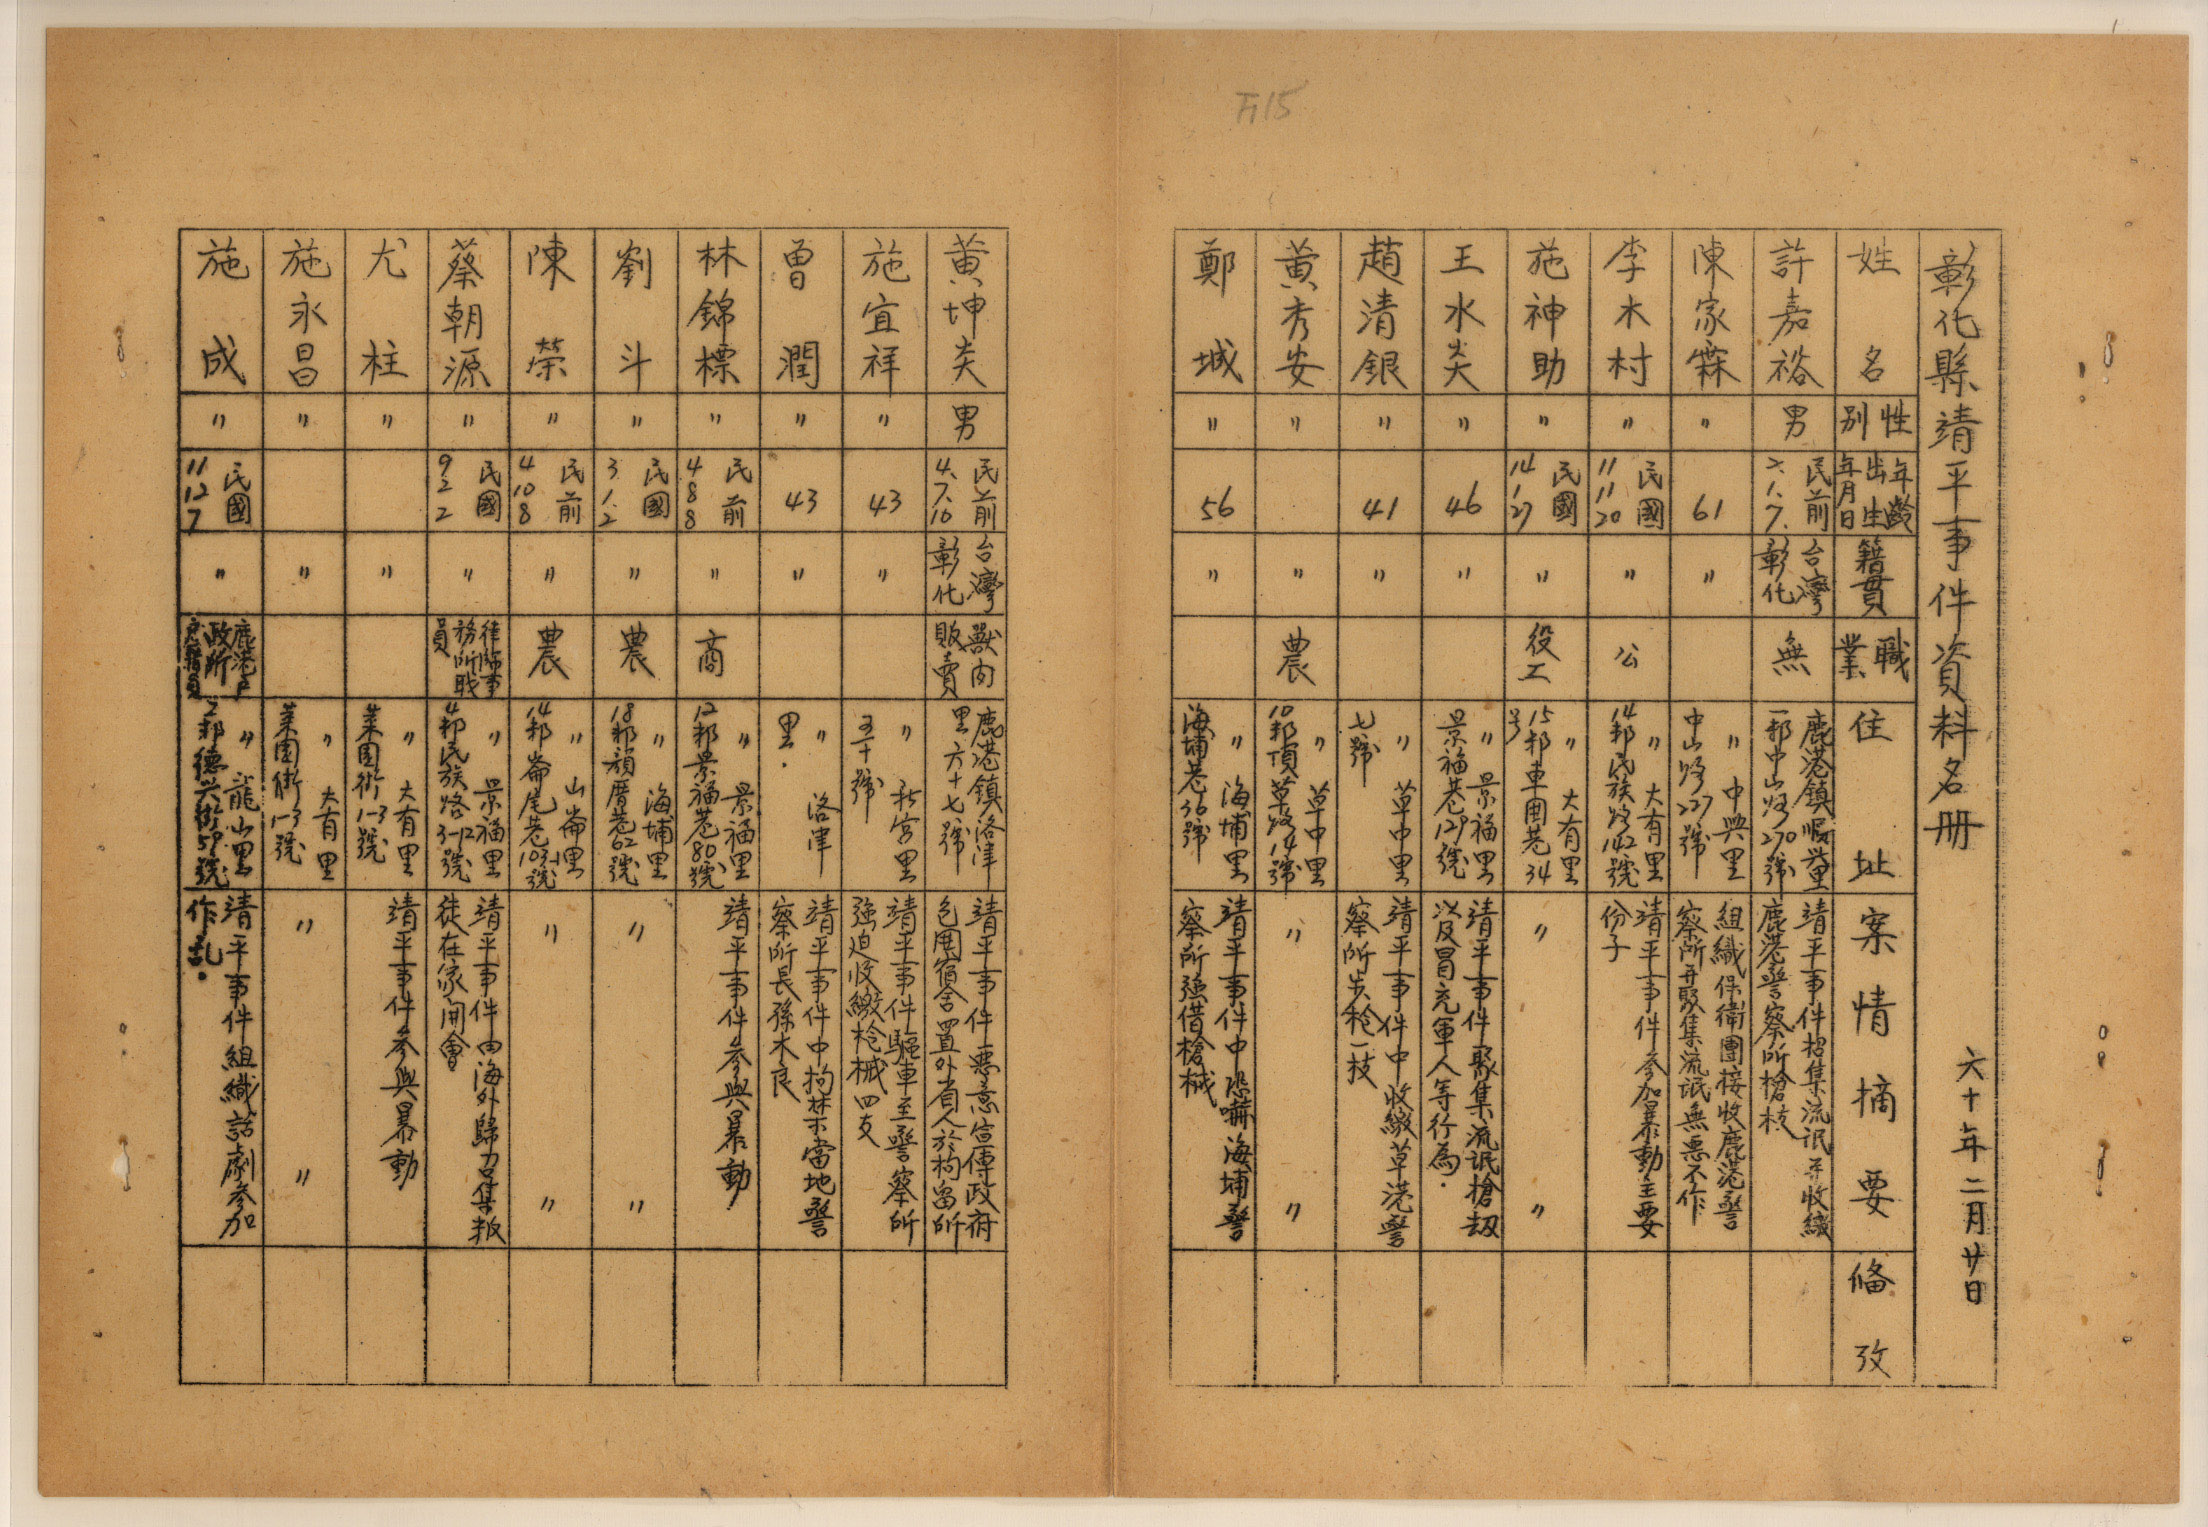 下15
彰化縣靖平事件資料名冊
六十年二月廿日
姓名
性別
年齡
出生
年月日
籍貫
職業
住址
案情摘要
俻攷
許嘉裕
男
民前
2.1.7.
台灣
彰化
無
鹿港鎮順興里
一鄰中山路270號
靖平事件招集流氓并收繳
鹿港警察所槍枝
陳家霖
〃
61
〃
〃中興里
中山路227號
組織保衛團接收鹿港警
察所并聚集流氓無惡不作
李木村
〃
民國
11 11 20
〃
公
〃大有里
14鄰民族路142號
靖平事件參加暴動主要
份子
施神助
〃
民國
14 1 27
〃
役工
〃大有里
15鄰車圍巷34
号
〃〃
王水炎
〃
46
〃
〃景福里
景福巷129號
靖平事件聚集流氓槍劫
以及冒充軍人等行為.
趙清銀
〃
41
〃
〃草中里
七號
靖平事件中收繳草港警
察所步枪一技
黃秀安
〃
〃
農
〃草中里
10鄰頂草路14號
〃〃
鄭城
〃
56
〃
〃海埔里
海埔巷36號
靖平事件中恐嚇海埔警
察所強借槍械
黃坤炎
男
民前
4.7.10
台灣
彰化
獸肉
販賣
鹿港鎮洛津
里六十七號
靖平事件惡意宣傳政府
包圍宿舍置外省人於拘留所
施宜祥
〃
43
〃
〃 宮里
五十號
靖平事件驅車至警察所
强迫收繳枪械四支
曾潤
〃
43
〃
〃洛津
里.
靖平事件中拘禁當地警
察所長孫木良
林錦標
〃
民前
4 8 8
〃
商
〃景福里
12鄰景福巷80號
靖平事件參與暴動.
劉斗
〃
民國
3.1.2
〃
農
〃海埔里
18鄰顏厝巷62號
〃〃
陳榮
〃
民前
4 10 8
〃
農
〃山崙里
14鄰崙尾巷103-1號
〃〃
蔡朝源
〃
民國
9 2 2
〃
律師事
務所職
員
〃景福里
4鄰民族路3-12號
靖平事件由海外歸召集叛
徒在家開會
尤柱
〃
〃
〃大有里
菜園街1-3號
靖平事件參與暴動
施永昌
〃
〃
〃大有里
菜園街1-3號
〃〃
施成
〃
民國
11 12 7
〃
鹿港戶
政所
戶籍員
〃龍山里
2鄰德興街59號
靖平事件組織話劇參加
作乱.